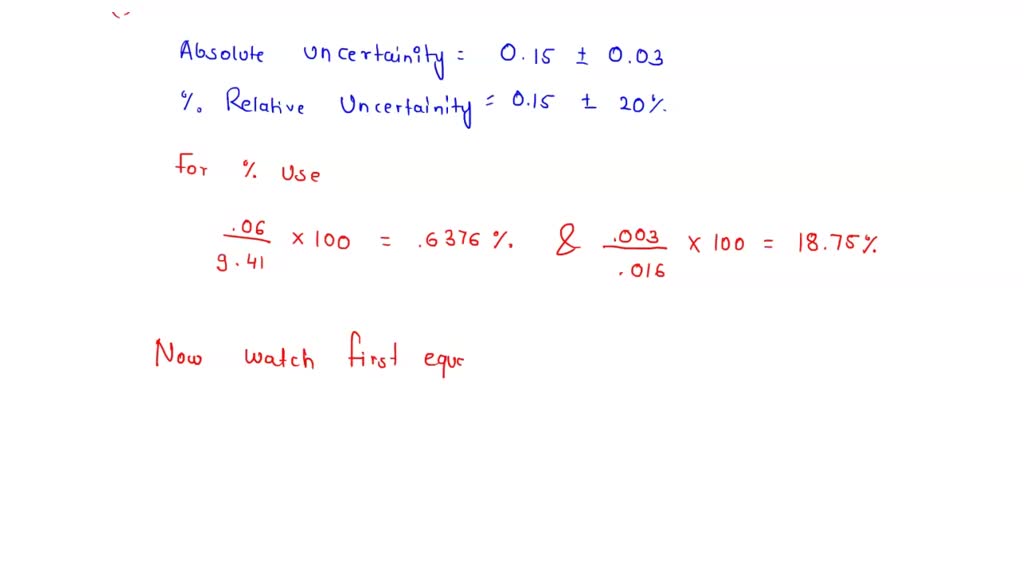 Absolute uncertainity = 0.15 ± 0.03
%. Relative Uncertainity = 0.15 ± 20%.
For %. Use
.06/9.41 × 100 = .6376 %. & .003/.016 × 100 = 18.75%
Now watch first equa